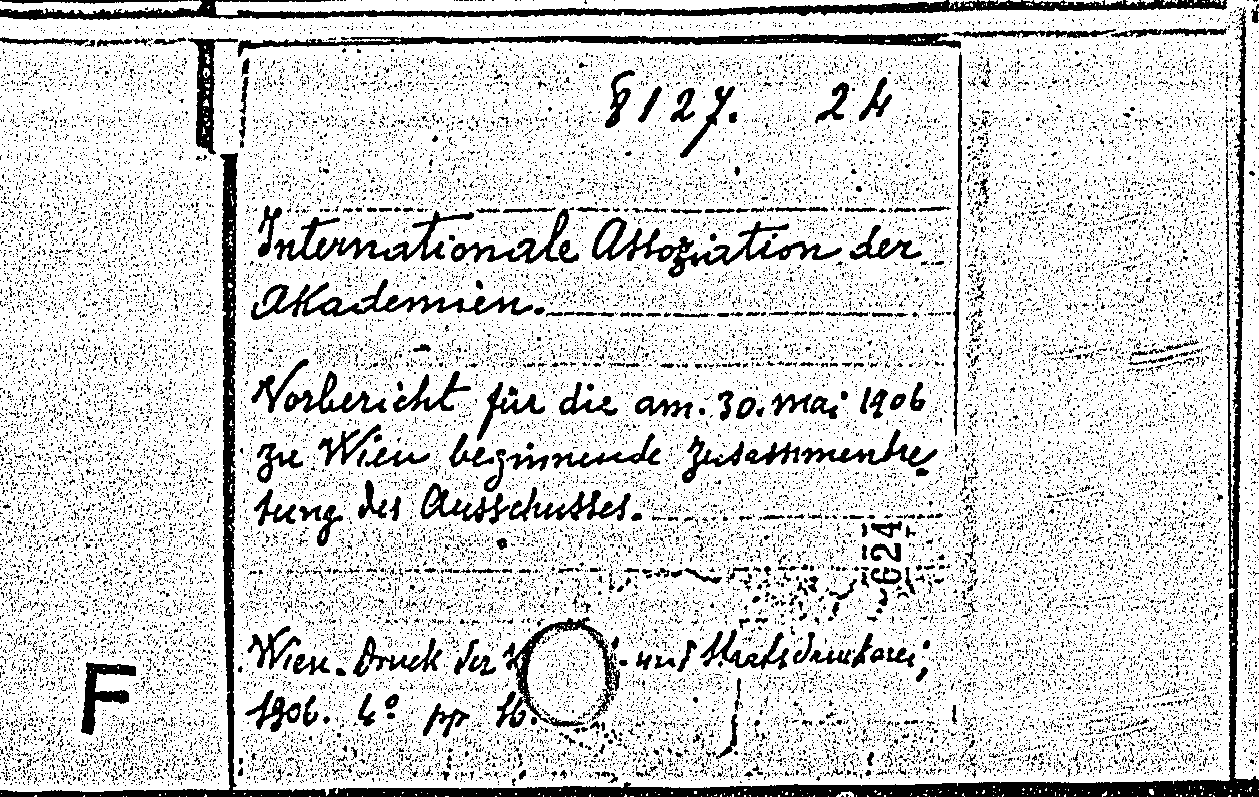 8127. 24
Internationale Assoziation der
Akademien.
Vorbericht für die am. 30. Mai 1906
zu Wien beginnende Zusammentre
tung des Ausschusses.
624
Wien. Druck der - und Staatsdruckerei;
1906. 4º pp 16.
F